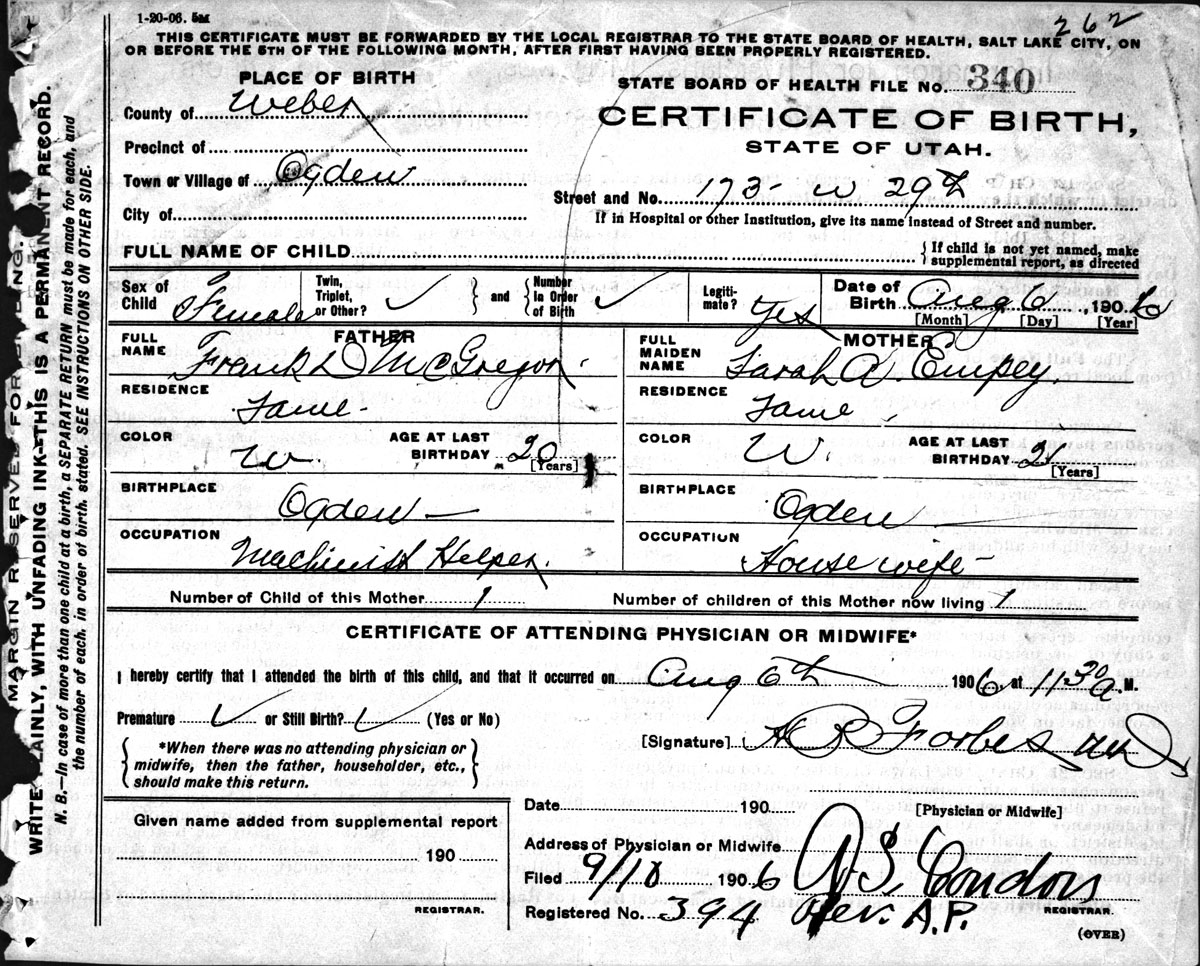 1-20-06. 5M
262
THIS CERTIFICATE MUST BE FORWARDED BY THE LOCAL REGISTRAR TO THE STATE BOARD OF HEALTH, SALT LAKE CITY, ON
OR BEFORE THE 5TH OF THE FOLLOWING MONTH, AFTER FIRST HAVING BEEN PROPERLY REGISTERED.
PLACE OF BIRTH
STATE BOARD OF HEALTH FILE No. 340
County of Weber
CERTIFICATE OF BIRTH,
STATE OF UTAH.
Precinct of
Town or Village of Ogden
Street and No. 173- W 29th
City of
If in Hospital or other Institution, give its name instead of Street and number.
FULL NAME OF CHILD
{ If child is not yet named, make supplemental report, as directed
Sex of Child Female
Twin, Triplet, or Other? ✓ } and { Number in Order of Birth ✓
Legiti-mate? Yes
Date of Birth Aug 6, 1906
[Month] [Day] [Year]
FATHER
FULL NAME Frank D McGregor.
RESIDENCE Same-
COLOR W.
AGE AT LAST BIRTHDAY 20 [Years]
BIRTHPLACE Ogden —
OCCUPATION Machinist Helper.
MOTHER
FULL MAIDEN NAME Sarah A. Empey.
RESIDENCE Same.
COLOR W.
AGE AT LAST BIRTHDAY 21 [Years]
BIRTHPLACE Ogden
OCCUPATION House wife-
Number of Child of this Mother 1
Number of children of this Mother now living 1
CERTIFICATE OF ATTENDING PHYSICIAN OR MIDWIFE*
I hereby certify that I attended the birth of this child, and that it occurred on Aug 6th 1906 at 11 30 a M.
Premature ✓ or Still Birth? ✓ (Yes or No)
[Signature] A R Forbes MD
{ *When there was no attending physician or
midwife, then the father, householder, etc.,
should make this return. }
Date 190
[Physician or Midwife]
Given name added from supplemental report
190
REGISTRAR.
Address of Physician or Midwife
Filed 9/10 1906
A S Condon
REGISTRAR.
Registered No. 394
Per. A.P.
(OVER)
MARGIN RESERVED FOR BINDING.
WRITE PLAINLY, WITH UNFADING INK--THIS IS A PERMANENT RECORD.
N. B.—In case of more than one child at a birth, a SEPARATE RETURN must be made for each, and
the number of each, in order of birth, stated. SEE INSTRUCTIONS ON OTHER SIDE.